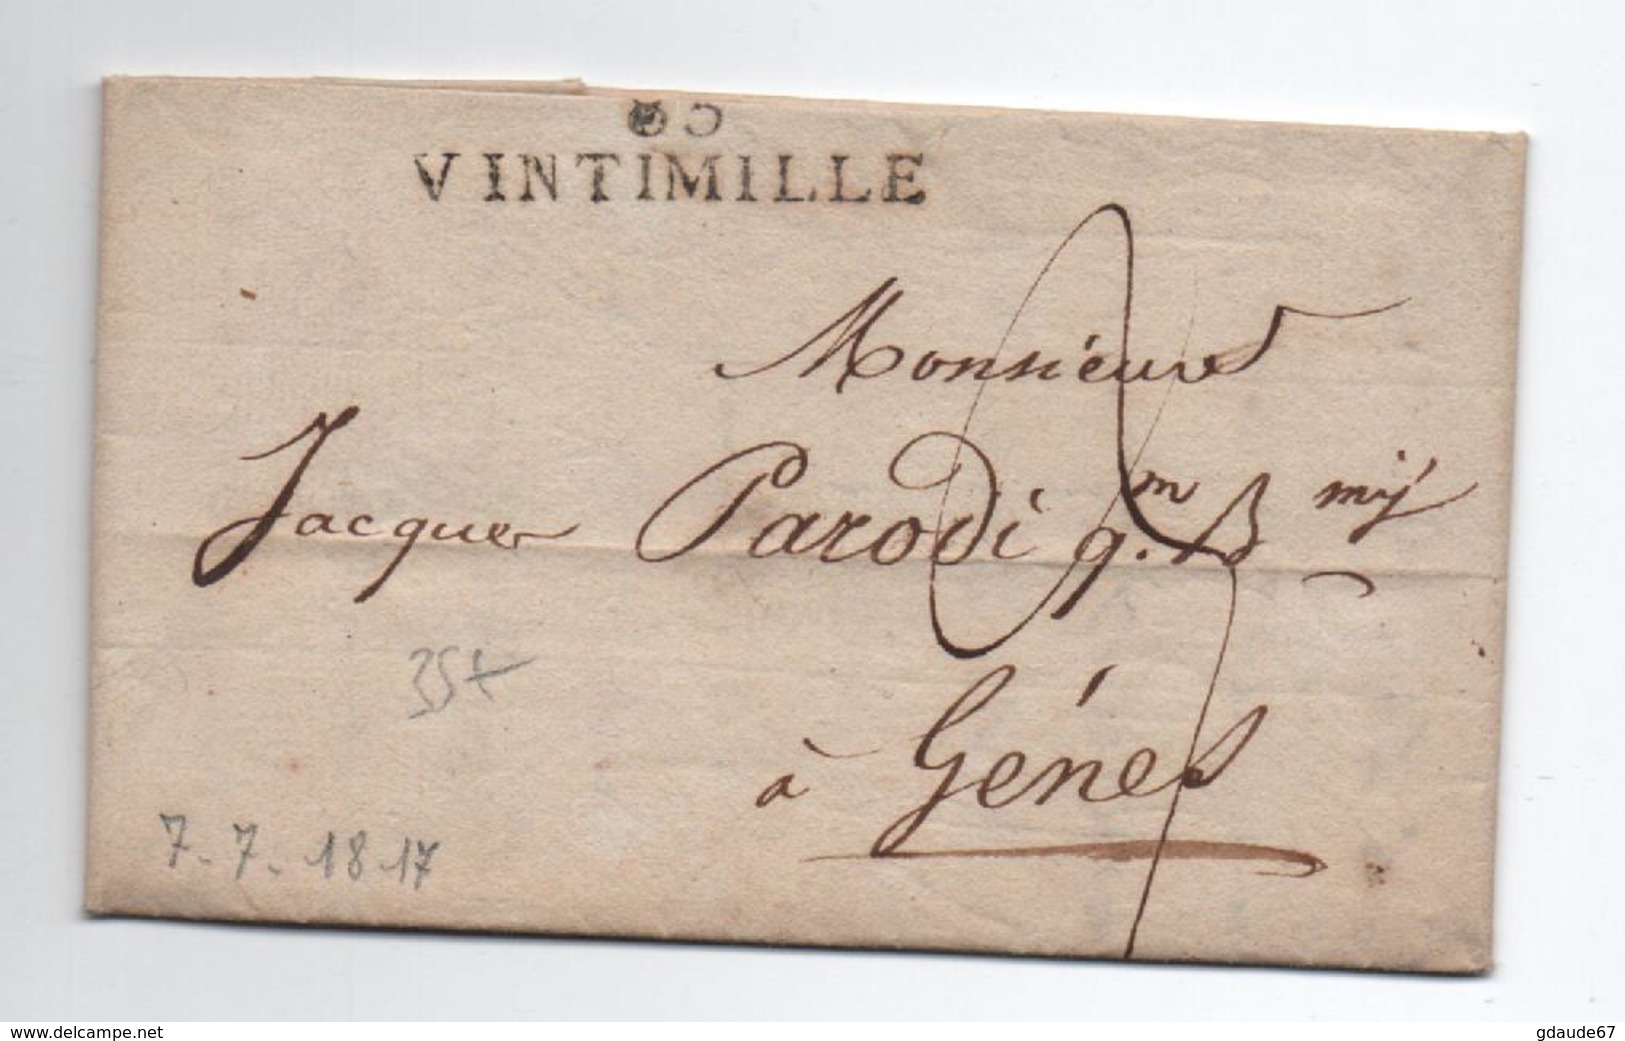 85
VINTIMILLE
Monsieur
Jacques Parodi q.m B mÿ
à Génes
35+
7-7-1817
www.delcampe.net
gdaude67